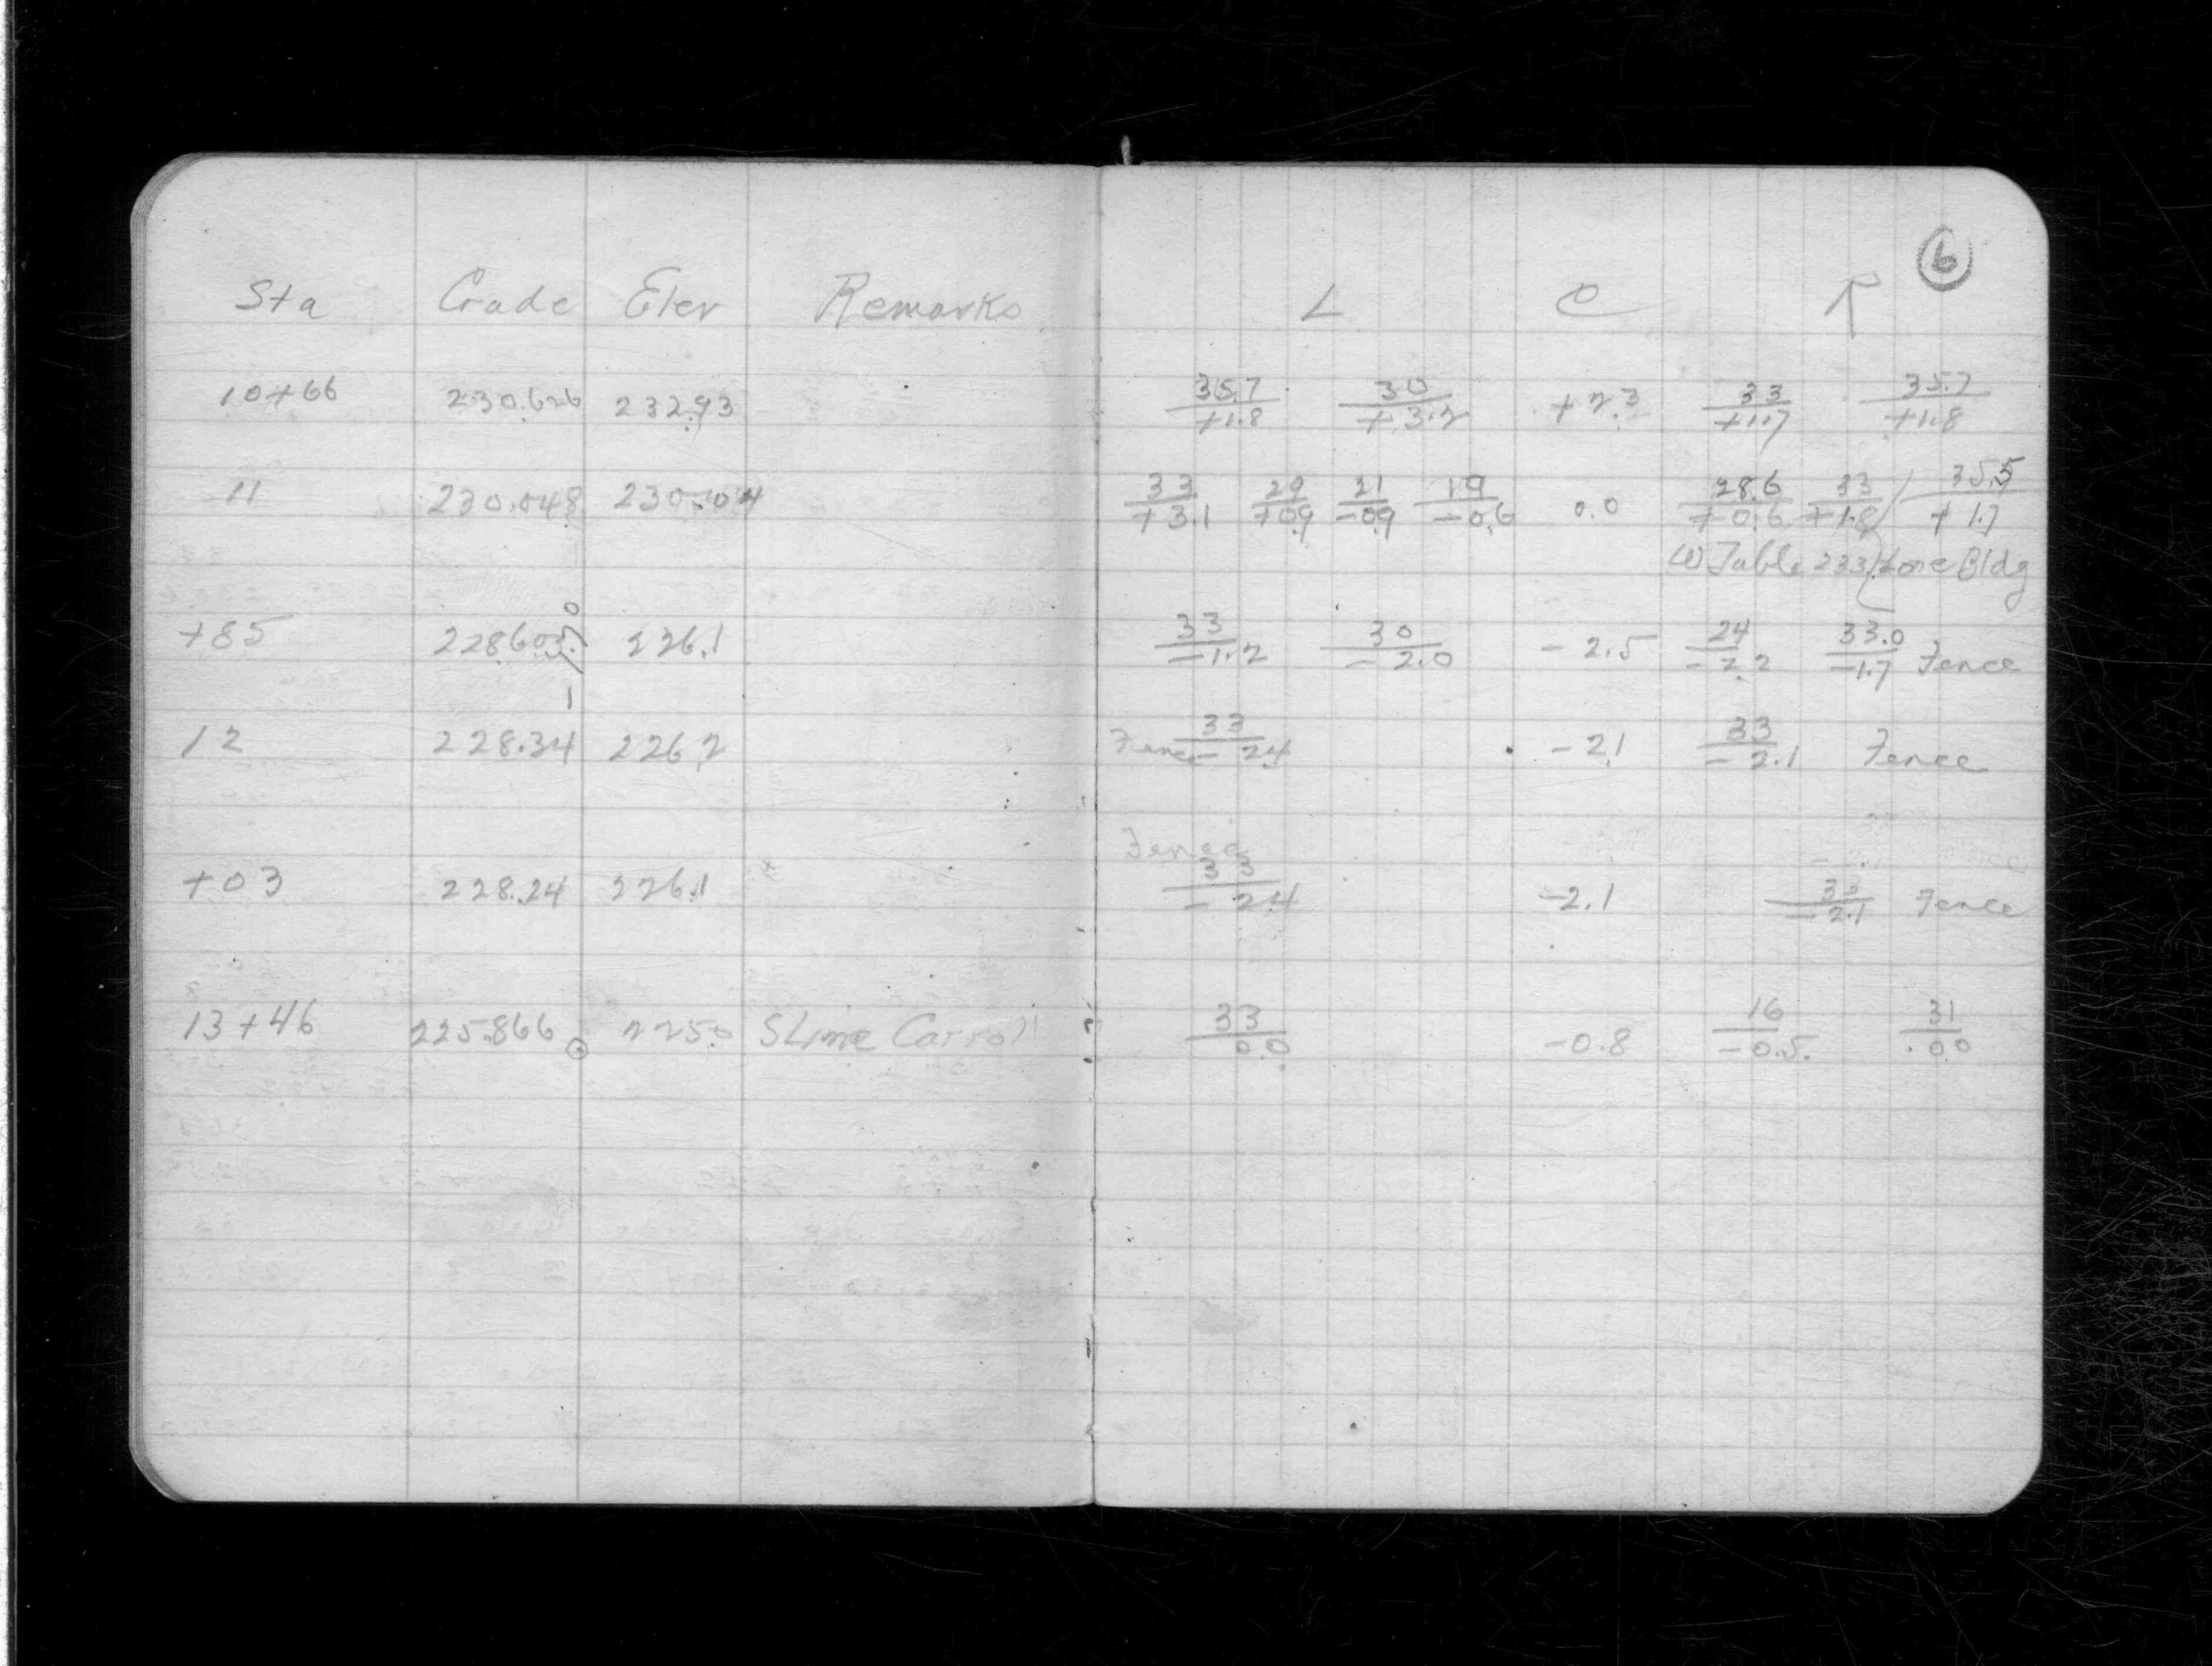 6
Sta Grade Elev Remarks L C R
10+66 230.626 232.93 35.7/+1.8 30/+3.2 +2.3 33/+1.7 35.7/+1.8
11 230.048 230.04 33/+3.1 29/+0.9 21/-0.9 19/-0.6 0.0 28.6/+0.6 33/+1.8 35.5/+1.7
W Table 233 Line Bldg
+85 228.603 226.1 33/-1.2 30/-2.0 -2.5 24/-2.2 33.0/-1.7 Fence
12 228.34 226.2 Fence 33/-2.4 -2.1 33/-2.1 Fence
Fence
+03 228.24 226.1 33/-2.4 -2.1 33/-2.1 Fence
13+46 225.866 225.0 S Line Carroll 33/0.0 -0.8 16/-0.5 31/0.0